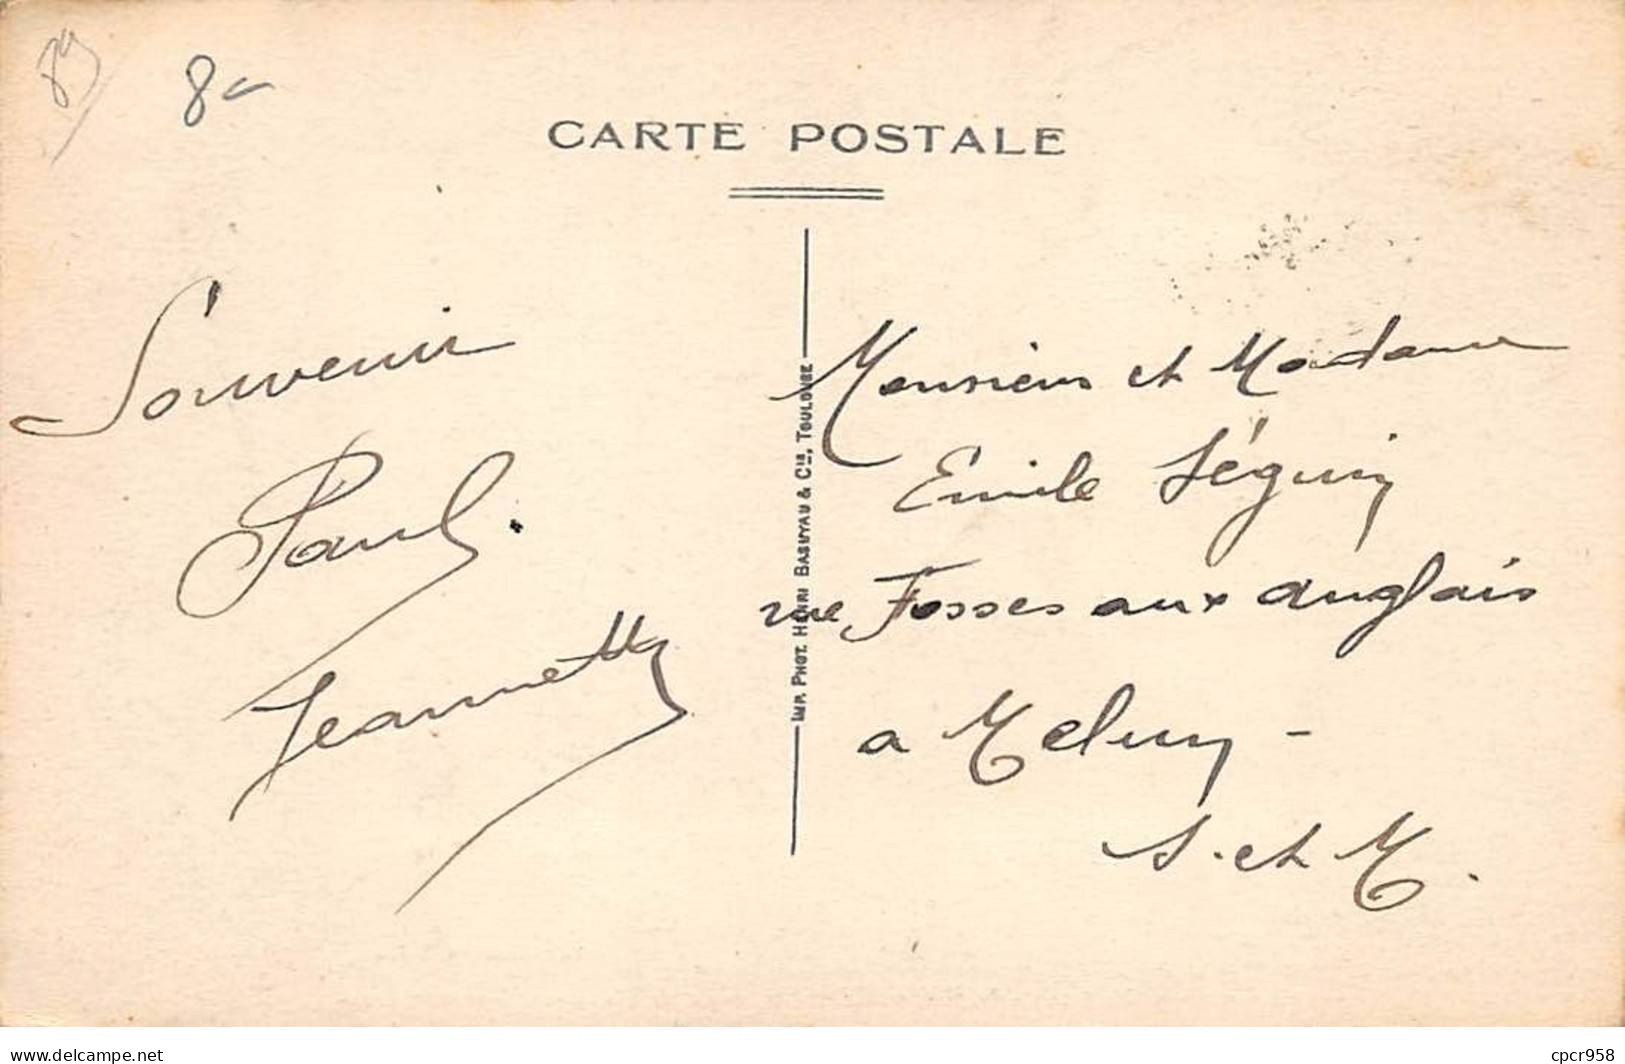 89
8
CARTE POSTALE
Souvenir
Paul.
Jeannette
IMP. PHOT. HENRI BASUYAU & Cie, TOULOUSE
Monsieur et Madame
Emile Séguin
rue Fosses aux anglais
a Melun -
S. et M.
www.delcampe.net
cpcr958